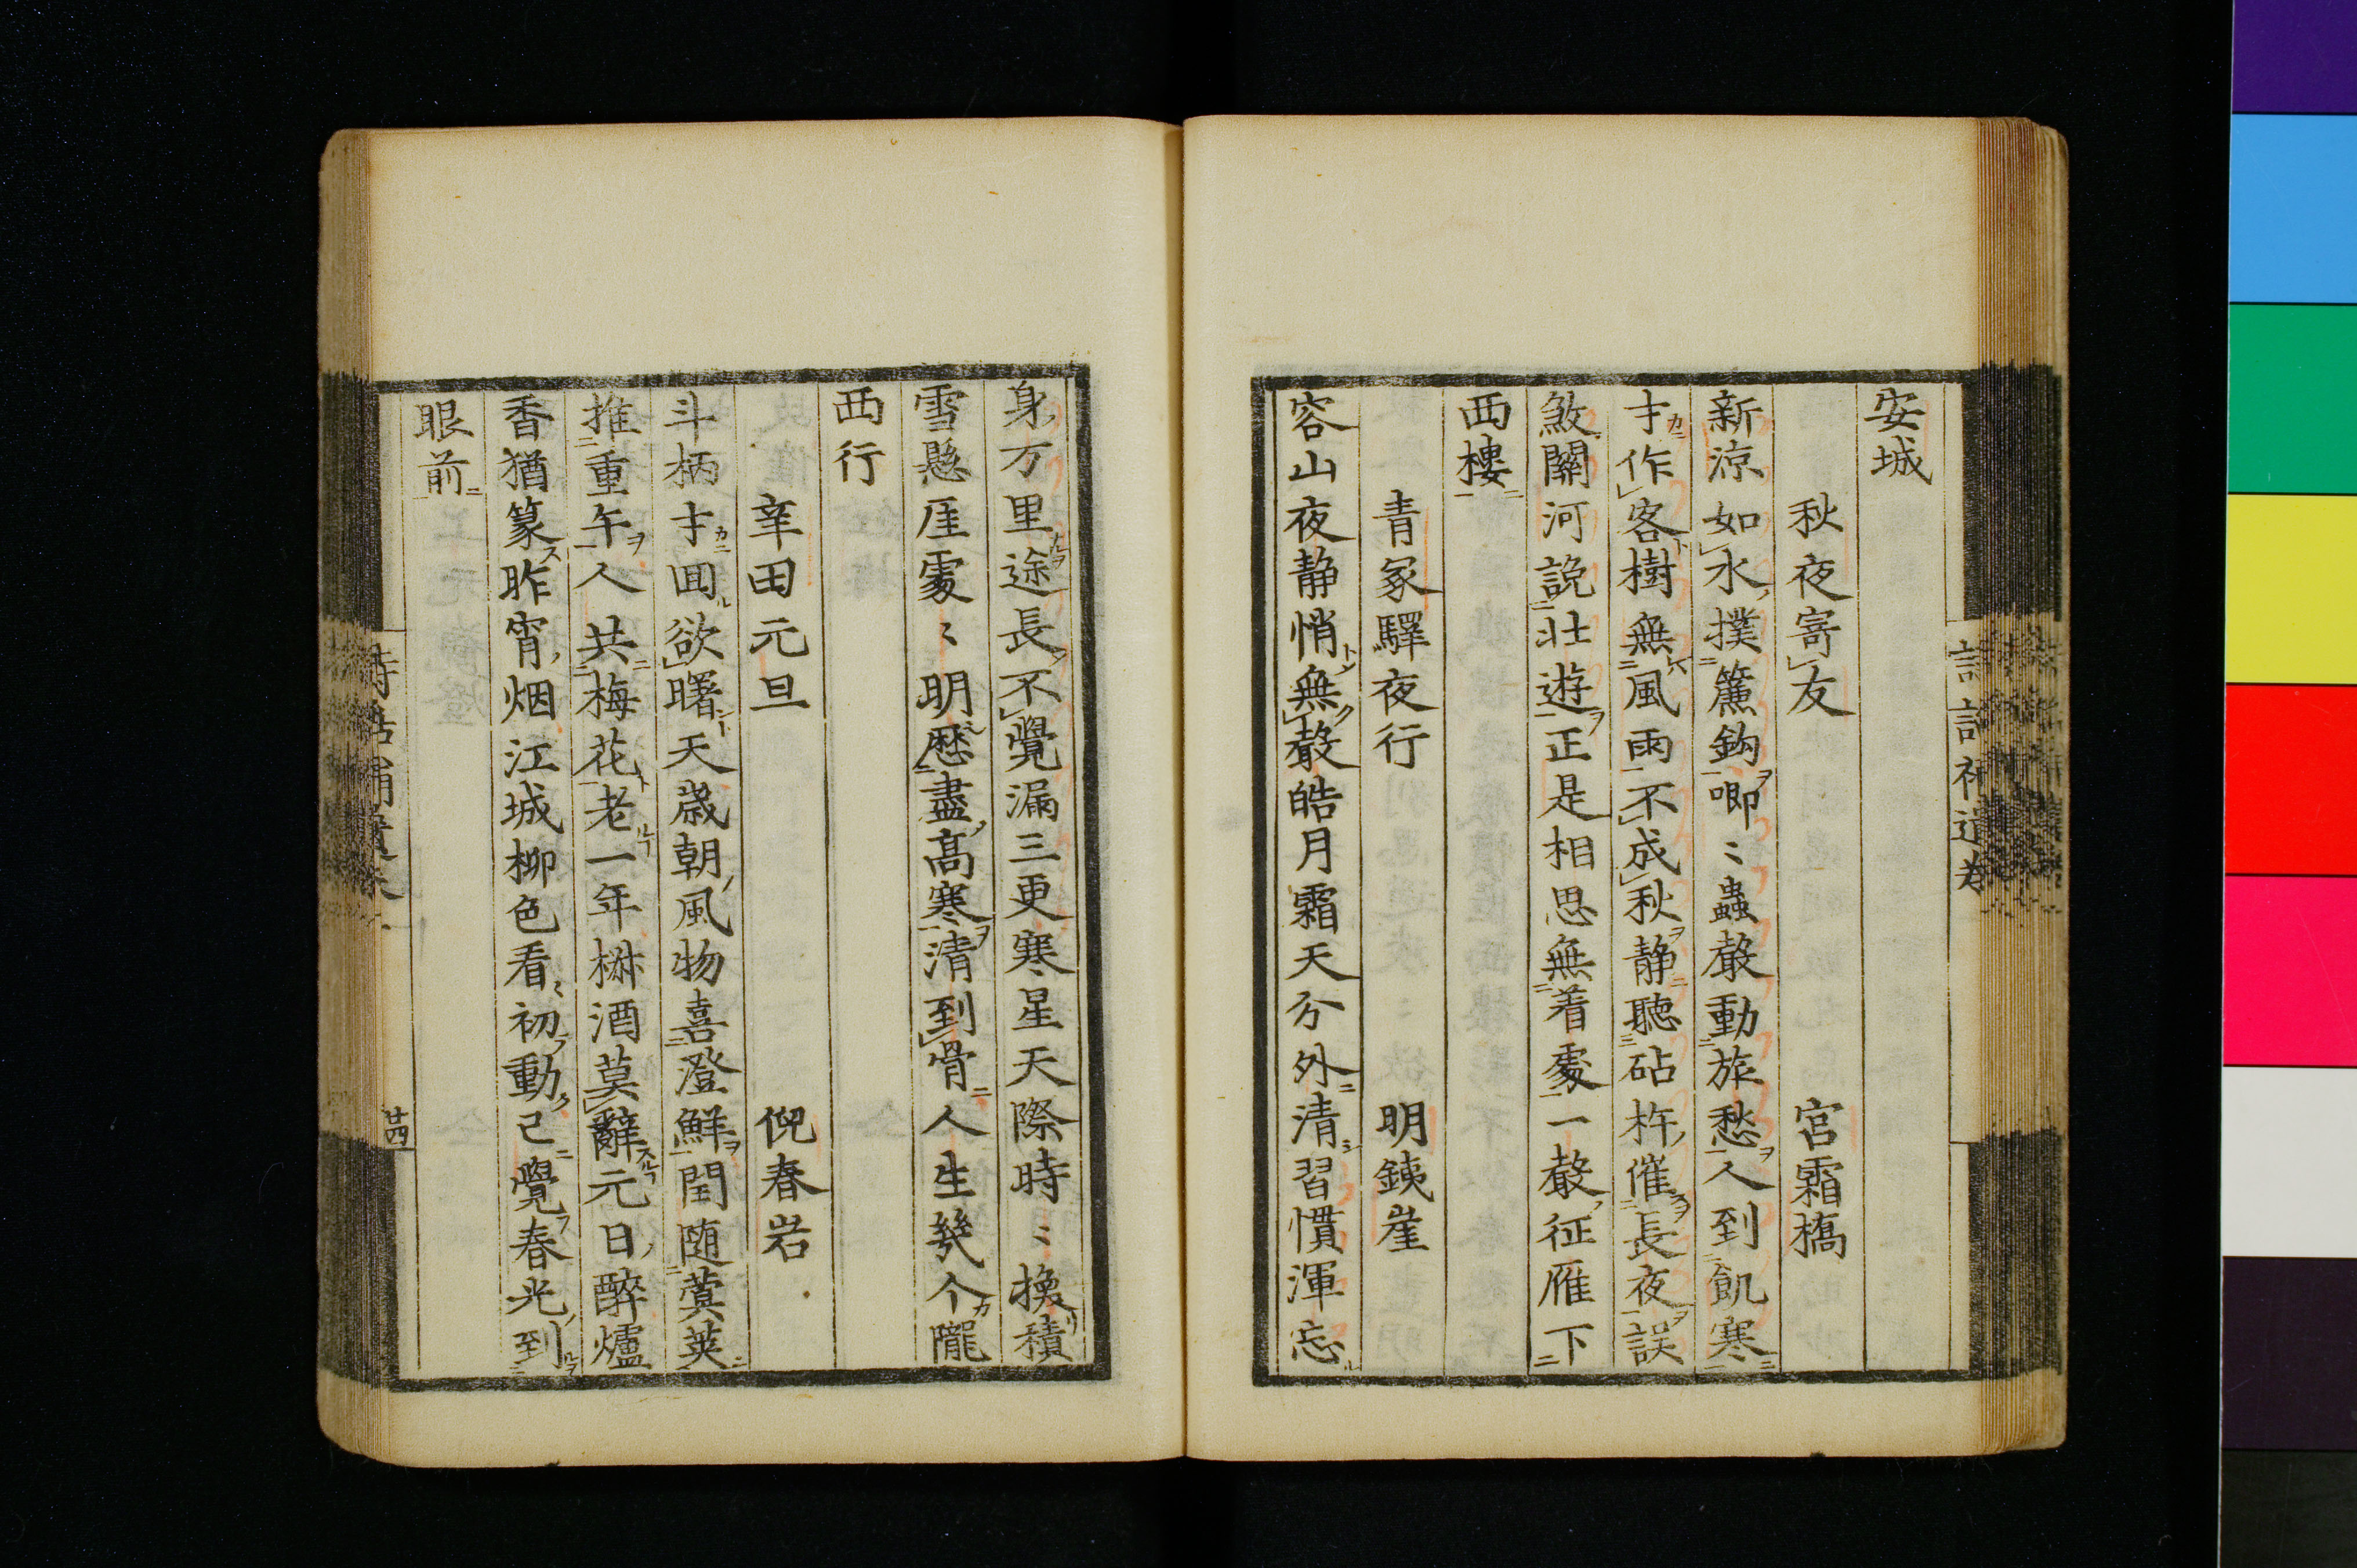 安城
秋夜寄友 宮霜橋
新涼如水撲簾鈎喞〻蟲聲動旅愁人到飢寒
才作客樹無風雨不成秋静聽砧杵催長夜誤
煞關河説壮遊正是相思無着處一聲征雁下
西樓
青冢驛夜行 明銕崖
容山夜静悄無聲皓月霜天分外清習慣渾忘
身万里途長不覺漏三更寒星天際時〻換積
雪懸厓處〻明歴盡高寒清到骨人生幾个隴
西行
辛田元旦 倪春岩
斗柄才囬欲曙天歳朝風物喜澄鮮閏随蓂莢
推重午人共梅花老一年椒酒莫辭元日醉爐
香猶篆昨宵烟江城柳色看〻初動已覺春光到
眼前
廿四